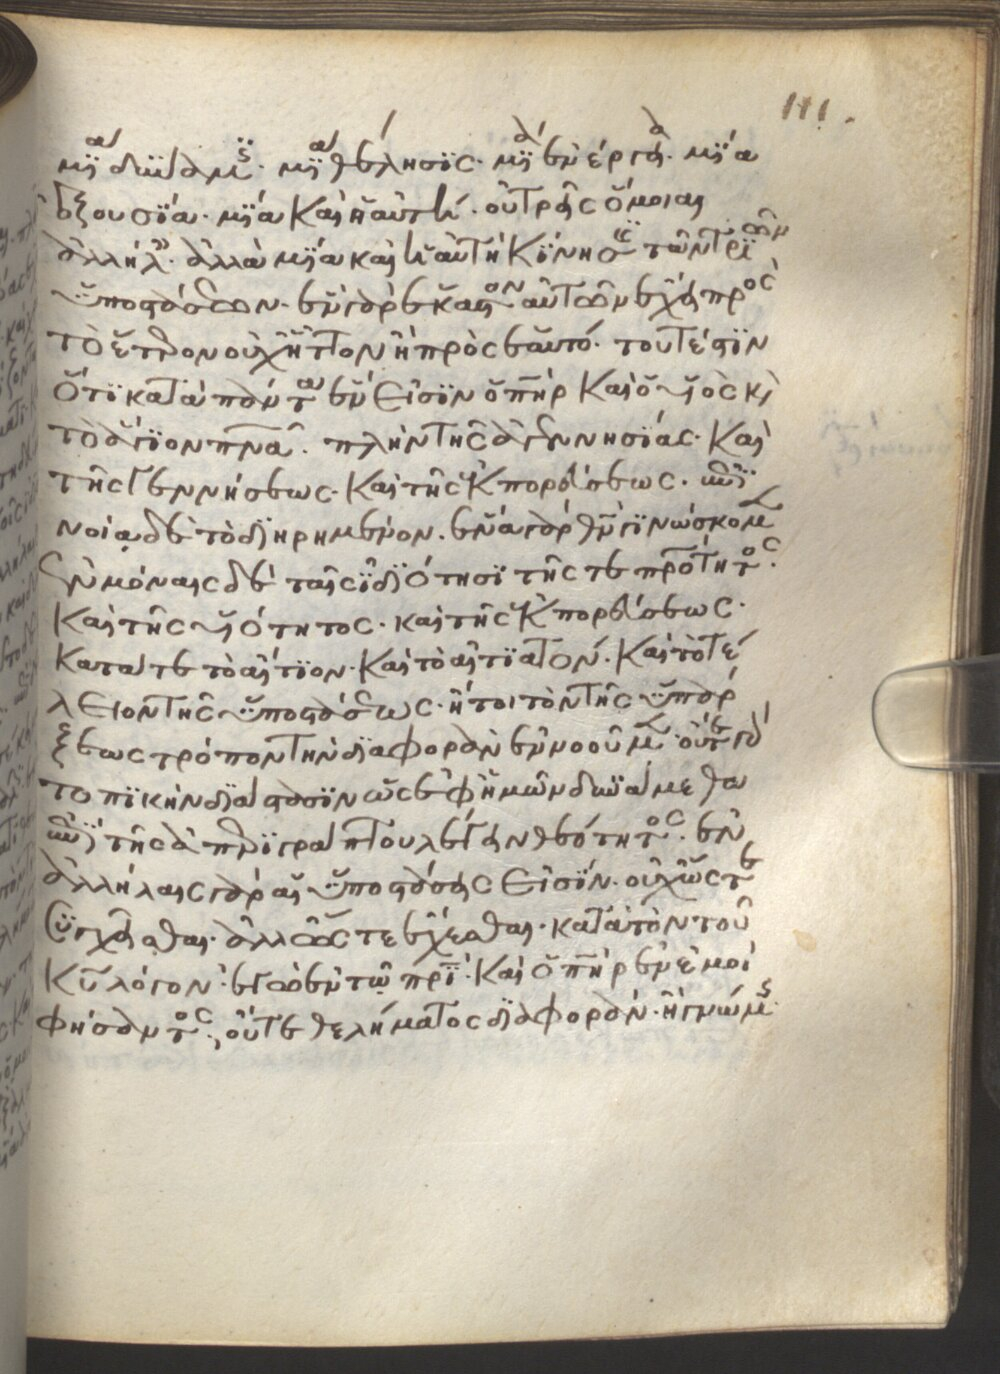 111.
μία δύναμις· μία θέλησις· μία ἐνέργεια· μία
ἐξουσία· μία καὶ ἡ αὐτή· οὐ τρεῖς ὅμοιαι
ἀλλήλων· ἀλλὰ μία καὶ ἡ αὐτὴ κίνησις τῶν τριῶν
ὑποστάσεων· ἓν γὰρ ἕκαστον αὐτῶν ἔχει πρὸς
τὸ ἕτερον οὐχ ἧττον ἢ πρὸς ἑαυτό· τουτέστιν
ὅτι κατὰ πάντα ἕν εἰσιν ὁ πηρ καὶ ὁ υἱὸς κὶ
τὸ ἅγιον πνα· πλὴν τῆς ἀγεννησίας· καὶ
τῆς γεννήσεως· καὶ τῆς ἐκπορεύσεως· ἐπι
νοίᾳ δὲ τὸ διηρημένον· ἕνα γὰρ θν γινώσκομεν
ἐν μόναις δὲ ταῖς ἰδιότησι τῆς τε πρότητος·
καὶ τῆς υἱότητος· καὶ τῆς ἐκπορεύσεως·
κατά τε τὸ αἴτιον· καὶ τὸ αἰτιατόν· καὶ τὸ τέ
λειον τῆς ὑποστάσεως· ἤτοι τὸν τῆς ὑπάρ
ξεως τρόπον τὴν διαφορὰν ἐννοοῦμεν· οὔτε γὰρ
τοπικὴν διάστασιν ὡς ἐφ' ἡμῶν δυνάμεθα
ἐπὶ τῆς ἀπεριγράπτου λέγειν θεότητος· ἐν
ἀλλήλαις γὰρ αἱ ὑποστάσεις εἰσίν· οὐχ ὥστε
συγχεῖσθαι· ἀλλ' ὥστε ἔχεσθαι· κατὰ τὸν τοῦ
κυ λόγον· ἐγὼ ἐν τῷ πρι· καὶ ὁ πηρ ἐν ἐμοὶ
φήσαντος· οὔτε θελήματος διαφορὰν· ἢ γνώμης·